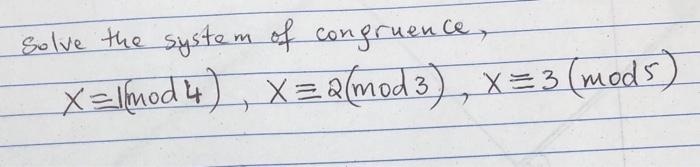 Solve the system of congruence,
X≡1(mod 4), X≡2(mod 3), X≡3 (mod 5)